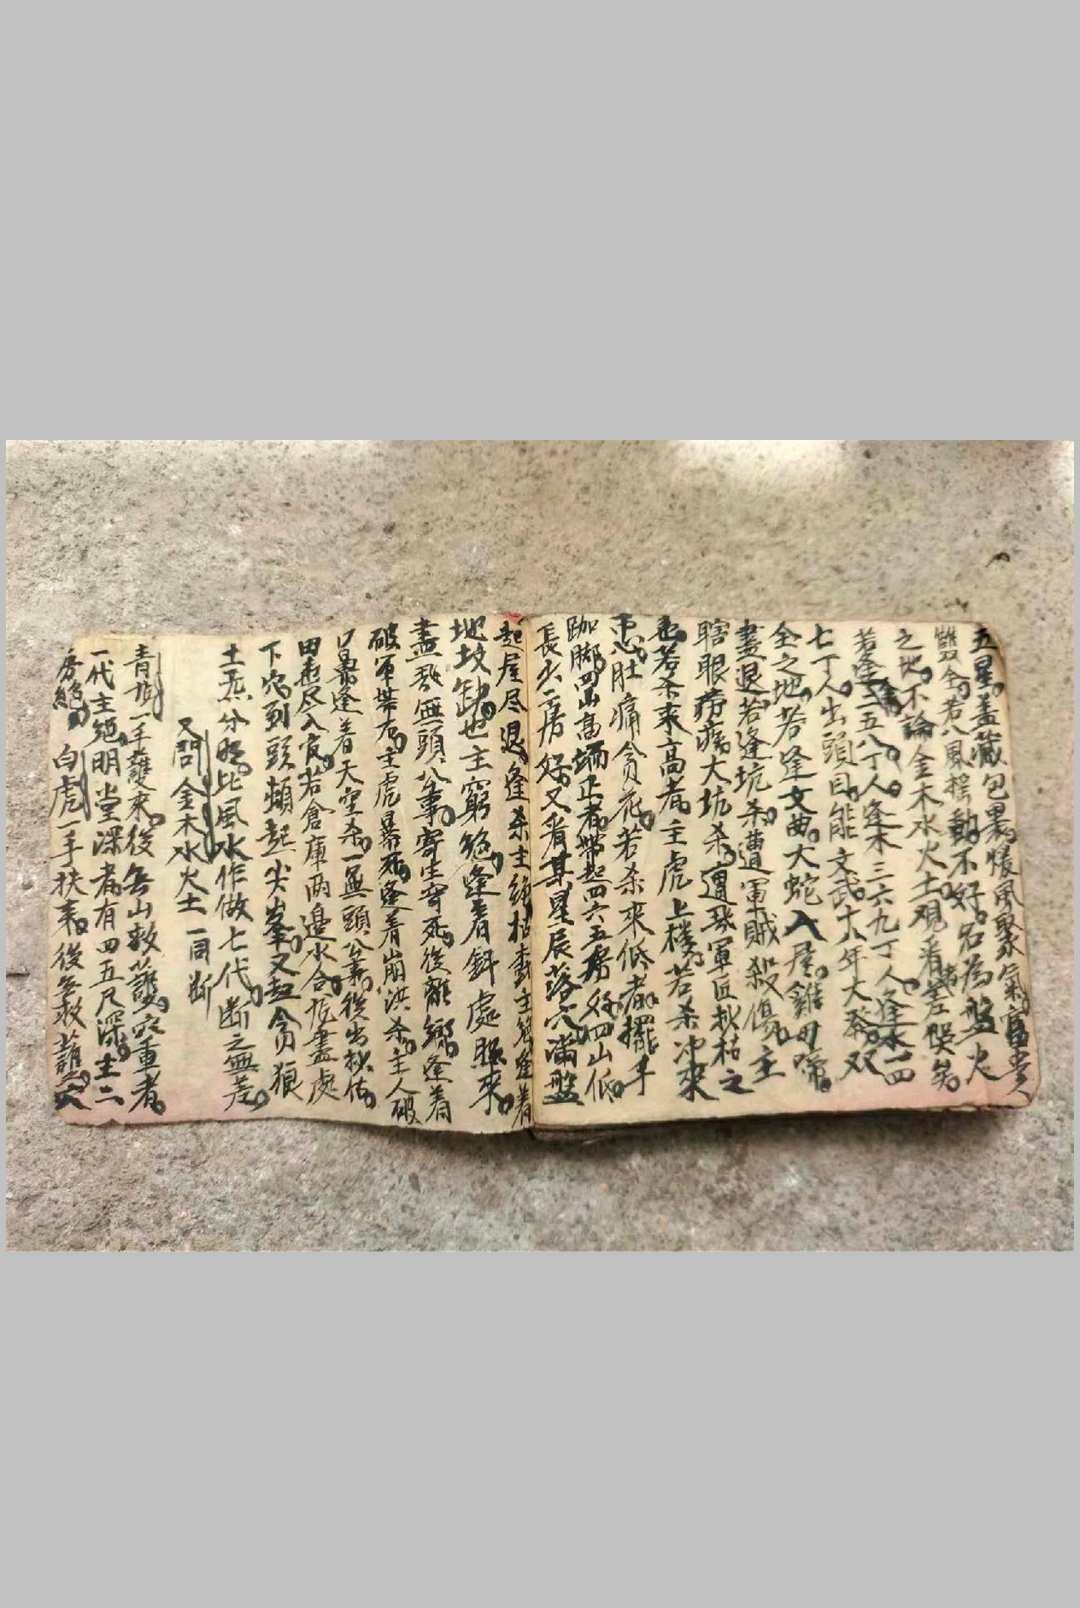 五星盖藏包裹帳風聚氣富貴
雙全若八風搖動不好名為盤火
之地不論金木水火土观看差悞矣
若逢金二五八丁人逢木三六九丁人逢水一四
七丁人出頭目能文武十八年大發双
全之地若逢文曲大蛇入屋雞母啼
盖退若逢坑杀遭軍賊殺傷主
瞎眼痨病大坑杀遭 軍匠 枯之
也若杀来高者主虎上樓若杀冲來
忠肚痛貪花若杀来低者擺手
跏脚四山高 正者帶起四六五房好四山低
長火二房好又看某星辰落穴滿盤
起屋尽退逢杀主絕 主 逢着
地坟缺也主窮絕逢着斜處照來
盡 無頭公事寄生寄死後離鄉逢着
破軍 主虎暴死逢着崩洪杀主人破
逢着天空杀一無頭公事後出
田 尽入官若倉庫两邊水合 盡處
下穴到頭頓起尖峯又起貪狼
土 分明比風水作做七代断之無差
又問金木水火土一同断
青龍一手 來後無山救護穴重者
一代主絕明堂深者有四五尺深主二
房絕白虎一手扶来後無救護穴